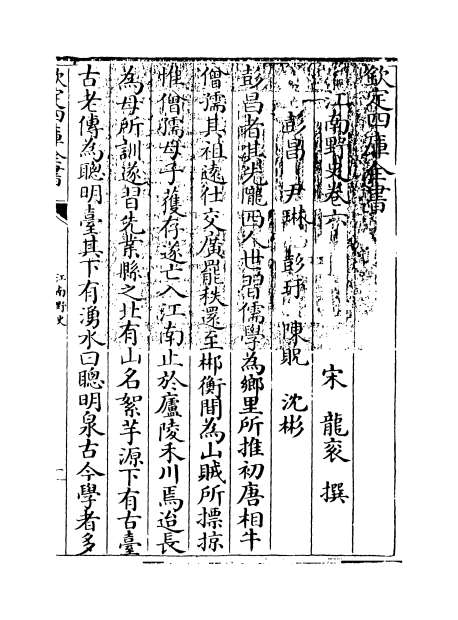 欽定四庫全書
江南野史卷六
宋 龍袞 撰
彭昌 尹琳 彭玕 陳貺 沈彬
彭昌者其先隴西人世習儒學為鄉里所推初唐相牛
僧孺其祖遠仕交廣罷秩還至郴衡間為山賊所摽掠
惟僧孺母子獲存遂亡入江南止於廬陵禾川焉迨長
為母所訓遂習先業縣之北有山名絮芋源下有古臺
古老傳為聰明臺其下有湧水曰聰明泉古今學者多
欽定四庫全書
江南野史
一